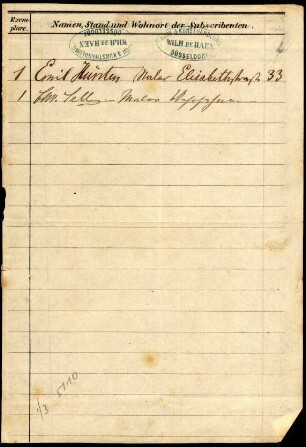 Exem-
plare.
Namen, Stand und Wohnort der Subscribenten.
WILH. DE HAEN
DÜSSELDORF
WILH. DE HAEN
DÜSSELDORF
1 Emil Hünten Maler Elisabethstraße 33.
1 Chr. Sell Maler
5110
1/3